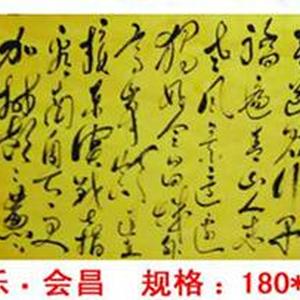 道君行早
踏遍青山人未
老风景这边
独好会昌城外
高峰颠连直
接东溟战士指
看南粤更
加郁郁葱葱
乐·会昌 规格:180*